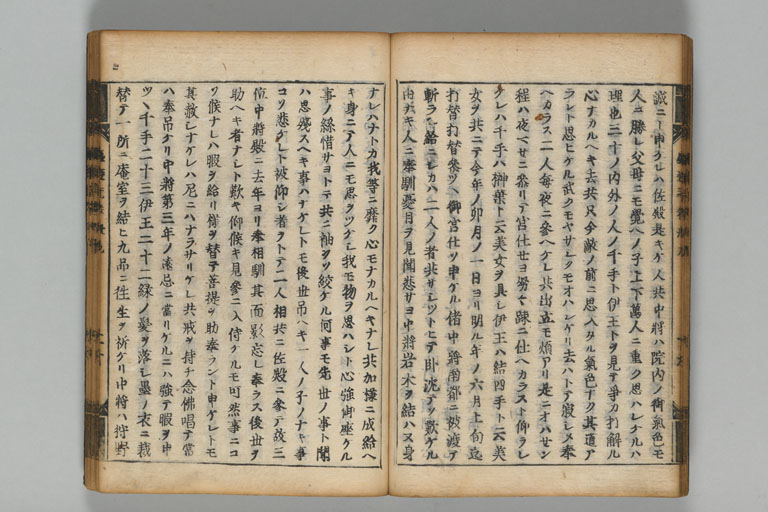 誠ニト申ケレハ佐殿是キケ人共中將ハ院内ノ御氣色モ
人ニ勝レ父母ニモ覺ヘノ子上下萬人ニ重ク思ハレケルハ
理也三十ノ内外ノ人ノ千手ト伊王トヲ見テ争カ打解ル
心ナカルヘキ去共只今敵ノ前ニ思入タル氣色ナク其道ア
ラレト思ヒケル武クモヤサシクモオハシケリ去ハトテ寂シメ奉
ヘカラス二人毎夜ニ參ヘケレ共出立モ煩アリ是ニオハサン
程ハ夜ヘセニ參リテ宮仕セヨ努々疎ニ仕ヘカラスト仰ラレ
ケレハ千手ハ榊葉ト云美女ヲ具シ伊王ハ結四手ト云美
女ヲ共ニテ今年ノ卯月ノ一日ヨリ明ル年ノ六月上旬迄
打替打替參ツヽ御宮仕ツ申ケル偖中將南都ニ被渡テ
斬ラレ給ニシカハ二人ノ者共サシツトヒテ臥沈テソ歎ケル
由ナキ人ニ奉馴憂目ヲ見聞悲サヨ中將岩木ヲ結ハヌ身
ナレハナトカ我等ニ靡ク心モナカルヘキナレ共加樣ニ成給ヘ
キ身ニテ人ニモ思ヲツケシ我モ物ヲ思ハシト心強御座ケル
事ノ糸惜サヨトテ共ニ袖ヲソ絞ケル何事モ先世ノ事ト聞
ハ思殘スヘキ事ハナケレトモ後世吊ヘキ一人ノ子ノナキ事
コソ悲ケレト被仰シ者ヲトテ二人相共ニ佐殿ニ參テ故三
位中將殿ニ去年ヨリ奉相馴其面影忘レ奉ラス後世ヲ
助ヘキ者ナシト歎キ仰候キ見參ニ入侍ケルモ可然事ニコ
ソ候ナレハ暇ヲ給リ樣ヲ替テ菩提ヲ助奉ラント申ケレトモ
其赦シナケレハ尼ニハナラサリケレ共戒ヲ持チ念佛唱テ常
ハ奉吊ケリ中將第三年ノ遠忌ニ當リケルニハ強テ暇ヲ申
ツヽ千手二十三伊王二十二緑ノ髮ヲ落シ墨ノ衣ニ裁
替テ一所ニ庵室ヲ結ヒ九品ニ往生ヲ祈ケリ中將ハ狩野